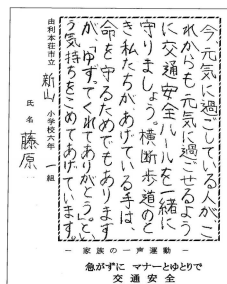 今元気に過ごしている人がこ
れからも元気に過ごせるよう
に交通安全ルールを一緒に
守りましょう。横断歩道のと
き私たちがあげている手は、
命を守るためでもあります
が、「ゆずってくれてありがとう。」と、
いう気持ちをこめてあげています。
由利本荘市立 新山 小学校六年 一組
氏名 藤原
- 家族の一声運動 -
急がずに マナーとゆとりで
交通安全